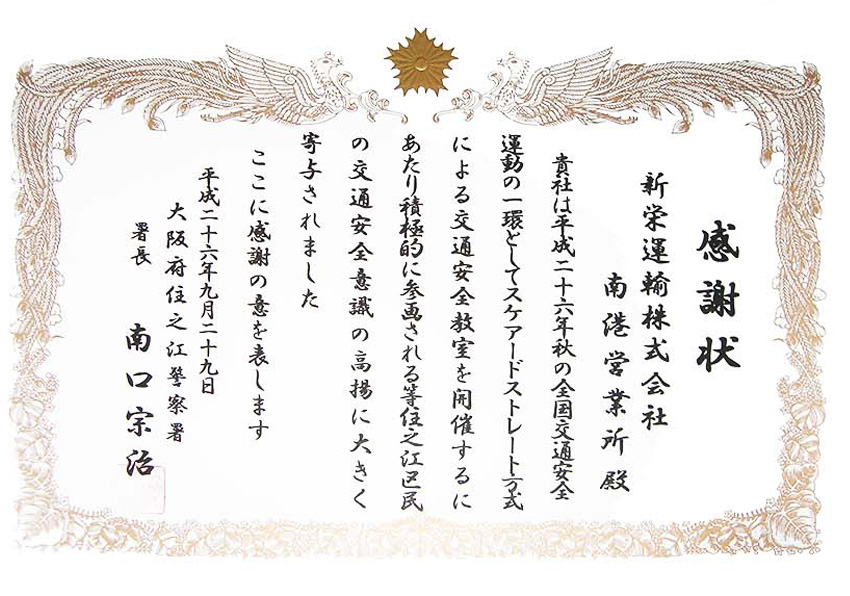 感謝状
新栄運輸株式会社
南港営業所殿
貴社は平成二十六年秋の全国交通安全
運動の一環としてスケアードストレート方式
による交通安全教室を開催するに
あたり積極的に参画される等住之江区民
の交通安全意識の高揚に大きく
寄与されました
ここに感謝の意を表します
平成二十六年九月二十九日
大阪府住之江警察署
署長 南口宗治